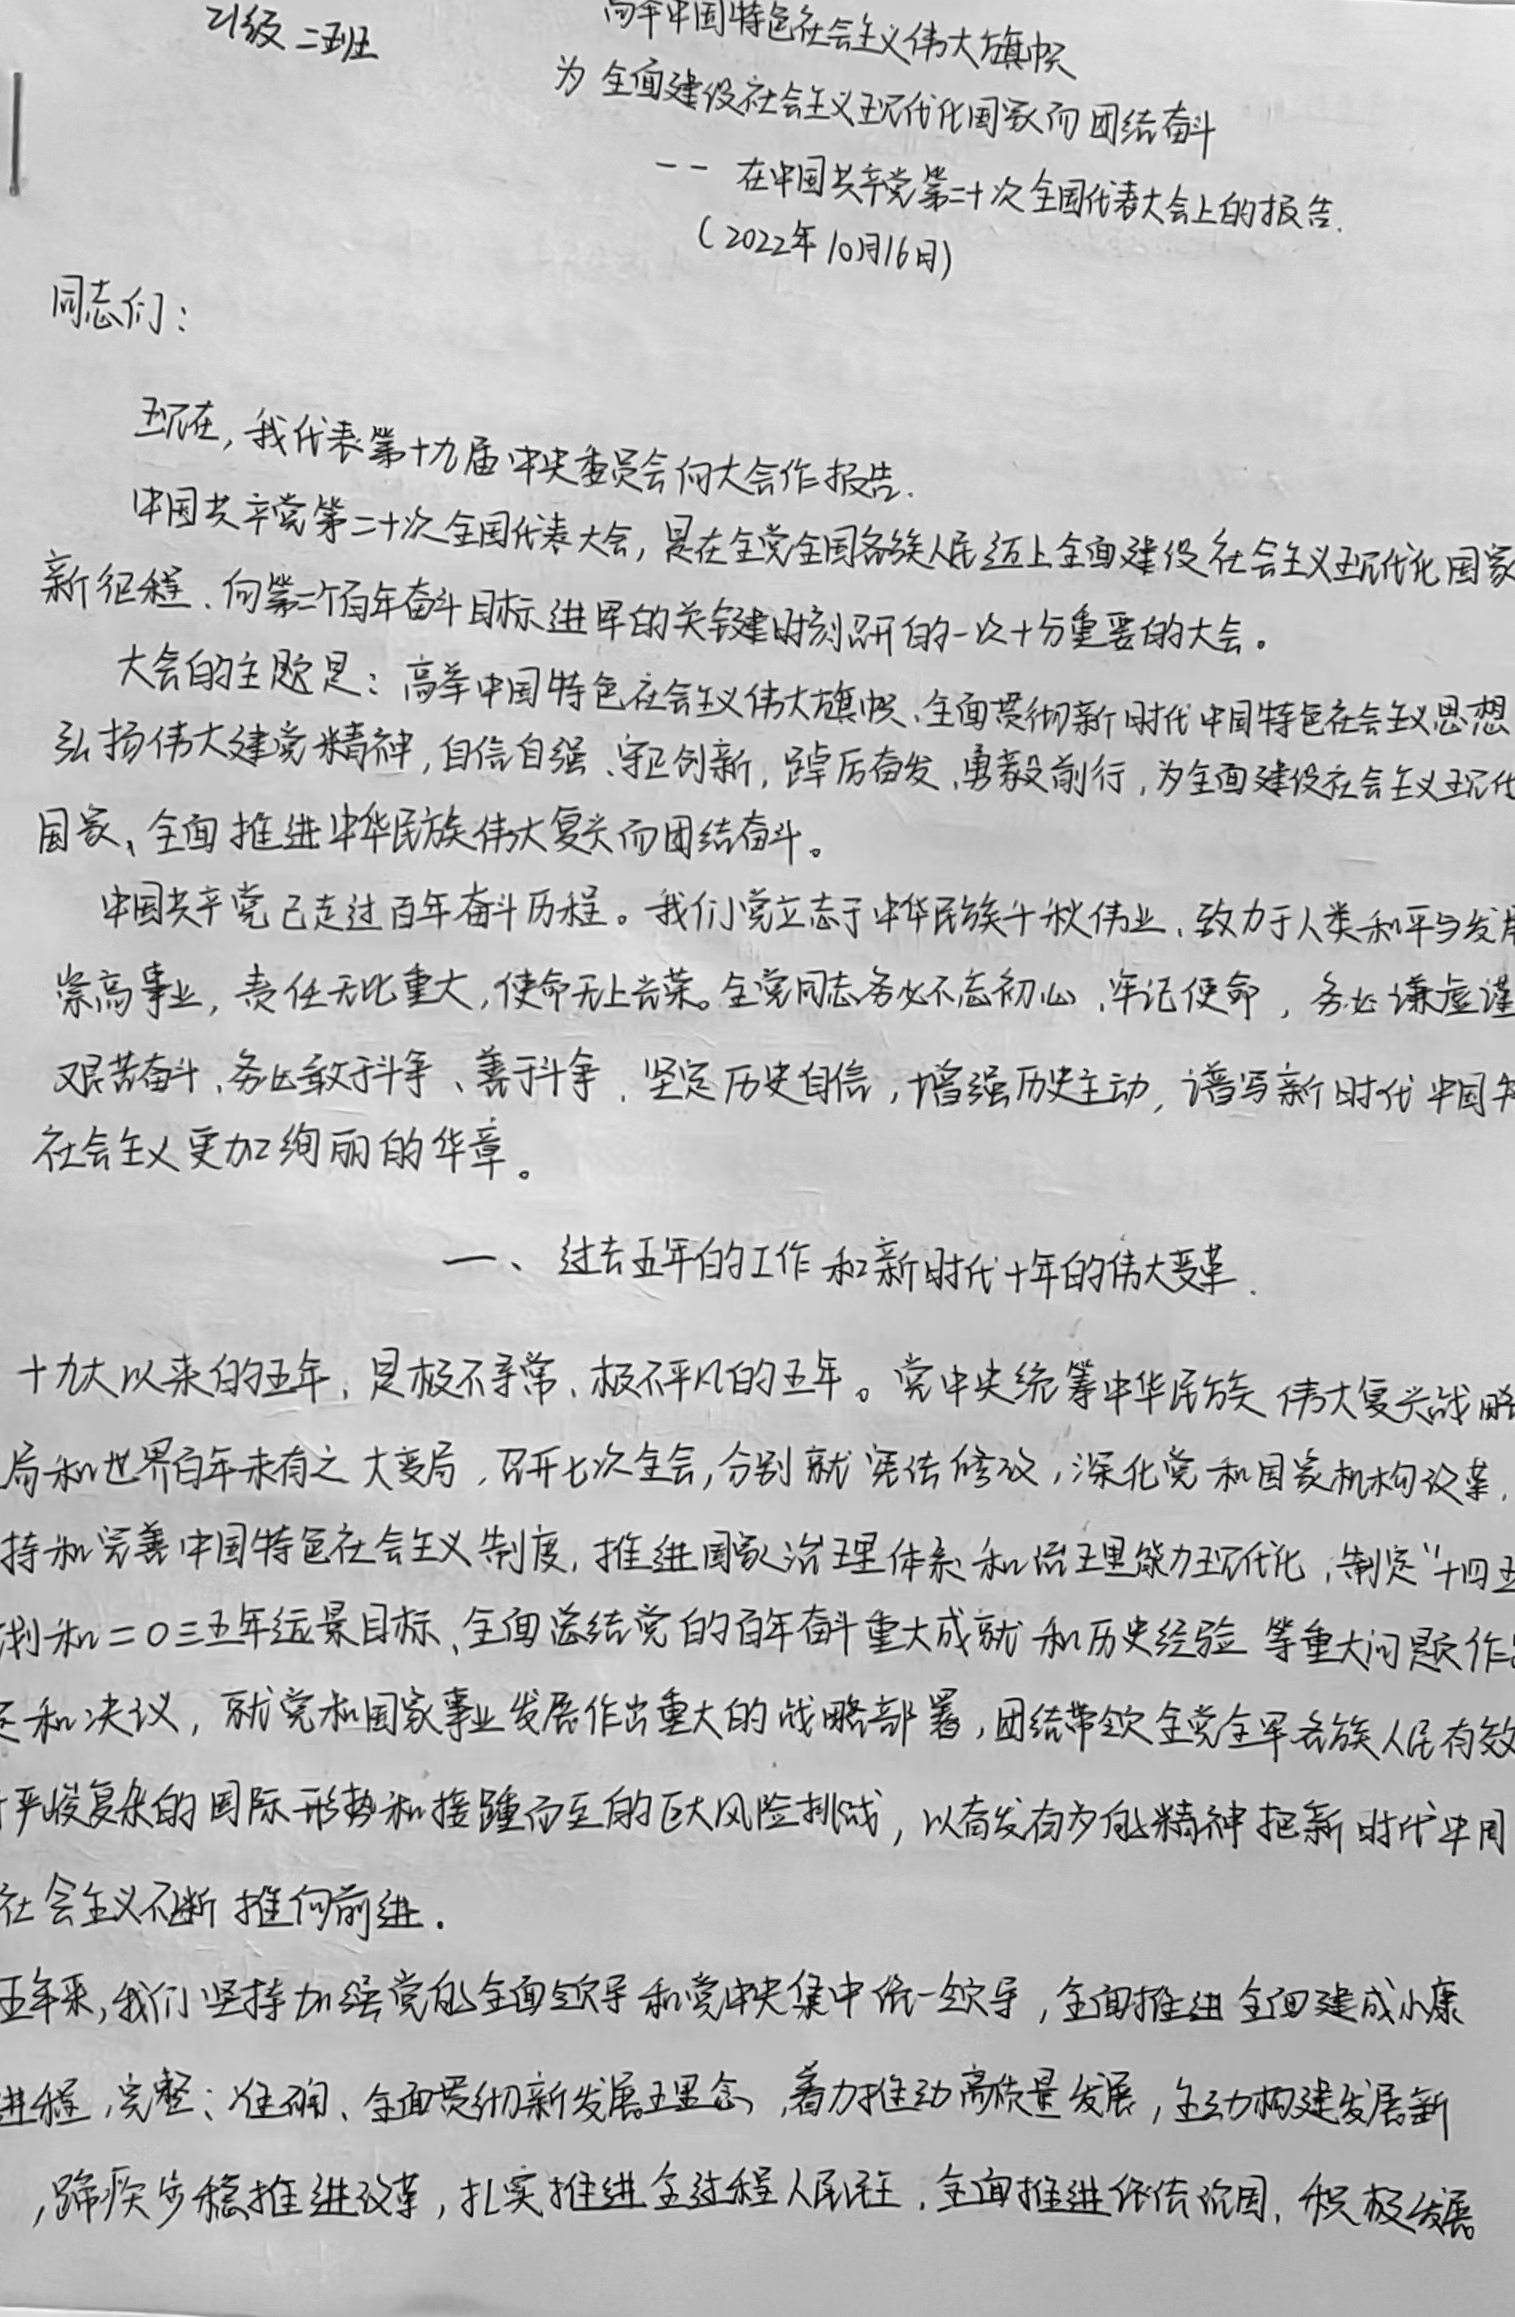 21级二班
高举中国特色社会主义伟大旗帜
为全面建设社会主义现代化国家而团结奋斗
——在中国共产党第二十次全国代表大会上的报告.
(2022年10月16日)
同志们:
现在,我代表第十九届中央委员会向大会作报告.
中国共产党第二十次全国代表大会,是在全党全国各族人民迈上全面建设社会主义现代化国家
新征程、向第二个百年奋斗目标进军的关键时刻召开的一次十分重要的大会。
大会的主题是:高举中国特色社会主义伟大旗帜、全面贯彻新时代中国特色社会主义思想
弘扬伟大建党精神,自信自强、守正创新,踔厉奋发、勇毅前行,为全面建设社会主义现代
国家、全面推进中华民族伟大复兴而团结奋斗。
中国共产党已走过百年奋斗历程。我们党立志于中华民族千秋伟业、致力于人类和平与发展
崇高事业,责任无比重大,使命无上光荣。全党同志务必不忘初心、牢记使命,务必谦虚谨
艰苦奋斗、务必敢于斗争、善于斗争、坚定历史自信,增强历史主动,谱写新时代中国特
社会主义更加绚丽的华章。
一、过去五年的工作和新时代十年的伟大变革.
十九大以来的五年,是极不寻常、极不平凡的五年。党中央统筹中华民族伟大复兴战略
局和世界百年未有之大变局,召开七次全会,分别就宪法修改,深化党和国家机构改革,
持和完善中国特色社会主义制度,推进国家治理体系和治理能力现代化,制定“十四五
划和二〇三五年远景目标、全面总结党的百年奋斗重大成就和历史经验等重大问题作出
定和决议,就党和国家事业发展作出重大的战略部署,团结带领全党全军各族人民有效
严峻复杂的国际形势和接踵而至的巨大风险挑战,以奋发有为的精神把新时代中国
社会主义不断推向前进.
五年来,我们坚持加强党的全面领导和党中央集中统一领导,全面推进全面建成小康
进程,完整、准确、全面贯彻新发展理念,着力推动高质量发展,主动构建发展新
,蹄疾步稳推进改革,扎实推进全过程人民民主,全面推进依法治国,积极发展